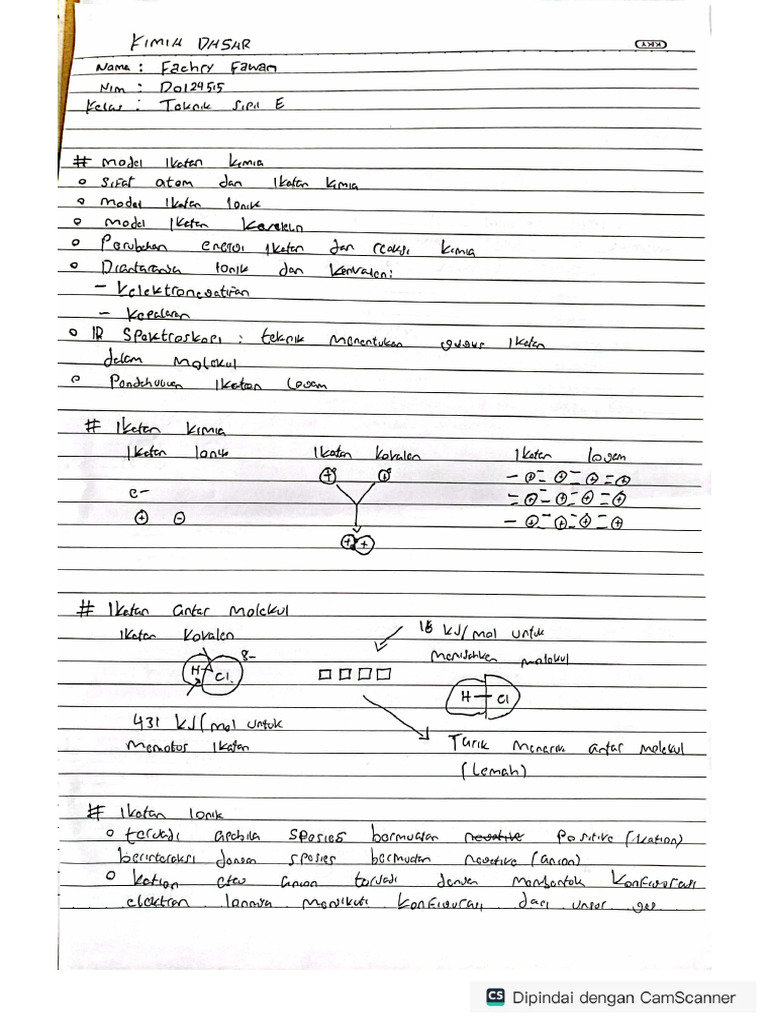 KIMIA DASAR
KKY
Nama : Fachry Fawan
Nim : D0124515
Kelas : Teknik Sipil E
# Model Ikatan Kimia
o Sifat atom dan Ikatan Kimia
o Model Ikatan Ionik
o Model Ikatan Kovalen
o Perubahan energi Ikatan dan reaksi kimia
o Diantaranya Ionik dan Kovalen:
- Kelektronegatifan
- Kepolaran
o IR Spektroskopi : teknik menentukan gugus Ikatan
dalam Molekul
o Ikatan Logam
# Ikatan Kimia
Ikatan Ionik Ikatan Kovalen Ikatan logam
e-
+ -
+ +
+ +
- + = + = + = +
= + = + = + = +
- + = + = + = +
# Ikatan antar Molekul
Ikatan Kovalen
8-
H Cl.
431 kJ/mol untuk
Memotos Ikatan
16 kJ/mol untuk
molekul
H - Cl
Tarik Menarik antar molekul
(Lemah)
# Ikatan Ionik
o terjadi apabila spesies bermuatan negative Positive (kation)
berinteraksi dengan spesies bermuatan negative (anion)
o kation atau anion terjadi dengan membentuk Konfigurasi
elektron lainnya mengikuti Konfigurasi dari unsur gas
CS Dipindai dengan CamScanner